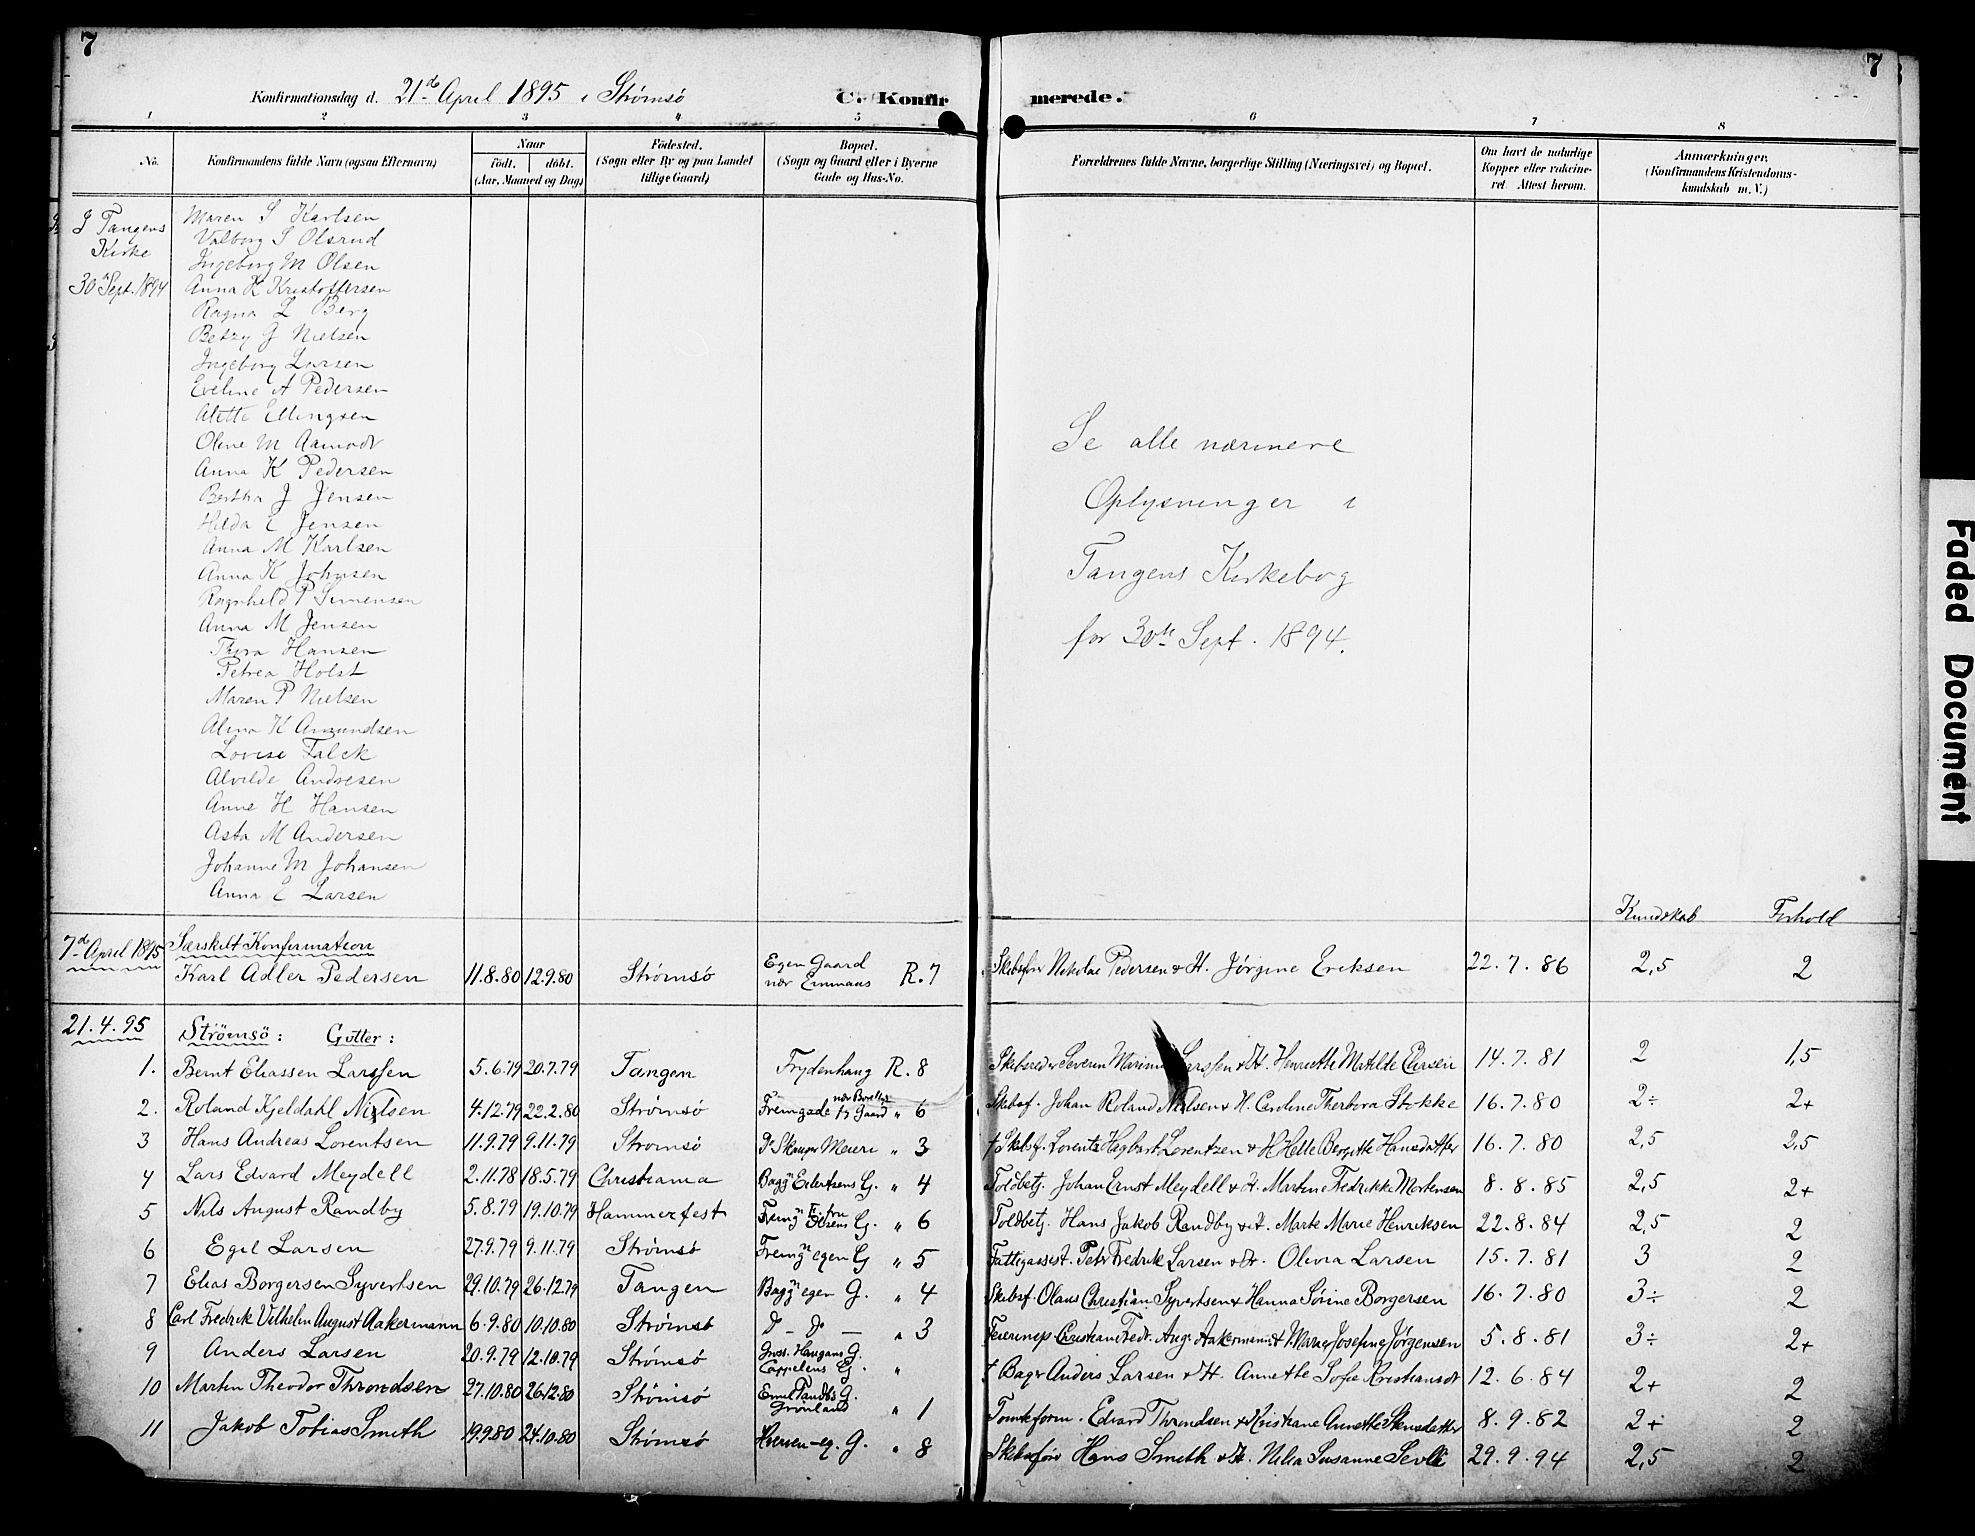 7
7
Konfirmationsdag d. 21de April 1895 i Strømsø
C. Konfirmerede.
1 2 3 4 5 6 7 8
No.
Konfirmandens fulde Navn (ogsaa Efternavn)
Naar
født. døbt.
(Aar, Maaned og Dag)
Fødested.
(Sogn eller By og paa Landet
tillige Gaard)
Bopæl.
(Sogn og Gaard eller i Byerne
Gade og Hus-No.
Forældrenes fulde Navne, borgerlige Stilling (Næringsvei) og Bopæl.
Om havt de naturlige
Kopper eller vakcine-
ret. Attest herom.
Anmærkninger.
(Konfirmandens Kristendoms-
kundskab m. V.)
I Tangens
Kirke
30 Sept. 1894
Maren S Karlsen
Valborg S Olsrud
Ingeborg M Olsen
Anna K Kristoffersen
Ragna L Berg
Betzy G Nielsen
Ingeborg Larsen
Eveline A Pedersen
Alette Ellingsen
Oline M Aamodt
Anna K Pedersen
Bertha J Jensen
Hilda E Jensen
Anna M Karlsen
Anna K Johnsen
Ragnhild P Simensen
Anna M Jensen
Thora Hansen
Petrea Holst
Maren P Nielsen
Alma K Amundsen
Lovise Falck
Alvilde Andresen
Anne H Hansen
Asta M Andersen
Johanne M Johansen
Anna E Larsen
Se alle nærmere
Oplysninger i
Tangens Kirkebog
for 30te Sept. 1894.
Kundskab Forhold
7de April 1895 Særskilt Konfirmation
Karl Adler Pedersen 11.8.80 12.9.80 Strømsø Egen Gaard nær Emmaus R. 7 Skibsfør Nikolai Pedersen & H. Jørgine Eriksen 22.7.86 2,5 2
21.4.95 Strømsø: Gutter:
1. Bernt Eliassen Larssen 5.6.79 20.7.79 Tangen Frydenhaug R. 8 Skibsreder Severin Larssen & H. Henriette Matilde Eliesen 14.7.81 2 1,5
2. Roland Kjeldahl Nielsen 4.12.79 22.2.80 Strømsø Fremgade Gaard " 6 Skibsf. Johan Roland Nielsen & H. Caroline Therbora Stokke 16.7.80 2÷ 2+
3 Hans Andreas Lorentsen 11.9.79 9.11.79 Strømsø Meieri " 3 † Skibsf. Lorents Hagbart Lorentzen & H Helle Bergitte Hansdatter 16.7.80 2,5 2,5
4 Lars Edvard Meydell 2.11.78 18.5.79 Christiania Bagg. Eilertsens G. " 4 Toldbetj. Johan Ernst Meydell & H. Martine Fredrikke Mortensen 8.8.85 2,5 2+
5 Nils August Randby 5.8.79 19.10.79 Hammerfest Fremg. Fru Olsens G. " 6 Toldbetj. Hans Jakob Randby & H. Marte Marie Henriksen 22.8.84 2,5 2
6 Egil Larsen 27.9.79 9.11.79 Strømsø Fremg. egen G " 5 Fattigassist. Petr Fredrik Larsen & H. Olivia Larsen 15.7.81 3 2
7 Elias Borgersen Syvertsen 29.10.79 26.12.79 Tangen Bagg. egen G. " 4 Skibsf. Olaus Christian Syvertsen & Hanna Sørine Borgersen 16.7.80 3÷ 2
8 Carl Fredrik Vilhelm August Aakermann 6.9.80 10.10.80 Strømsø do - do - " 3 Christian Fredr. Aug. Aakermann & H. Marie Josefine Jørgensen 5.8.81 3÷ 2+
9 Anders Larsen 20.9.79 12.10.79 Strømsø Haugans G. Cappelens G. " † Anders Larsen & H. Annette Sofie Kristiansdt 12.6.84 2+ 2
10 Martin Theodor Throndsen 27.10.80 26.12.80 Strømsø G. Grønland " 1 Tomteform. Edvard Throndsen & Kristiane Annette Stensdatter 8.9.82 2+ 2
11 Jakob Tobias Smith 19.9.80 24.10.80 Strømsø eg. G. " 8 Skibsfør Hans Smith & H. Nilia Susanne Sevli 29.9.94 2,5 2
Faded Document